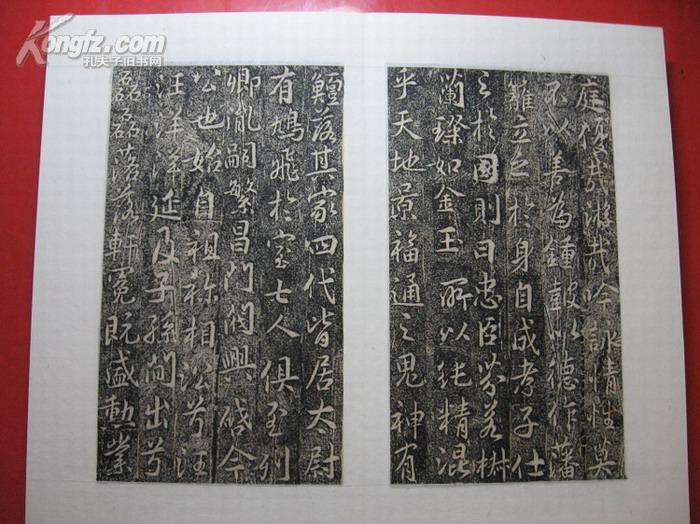 Kongfz.com
孔夫子旧书网
庭優哉游哉吟詠情性莫
不以善為鍾鼓以德作藩
籬立之於身自成孝子仕
之於國則曰忠臣芬若椒
蘭璨如金玉所以精混
乎天地景福通之鬼神有
鱣落其家四代皆居太尉
有鳩飛於室七人俱至列
卿胤嗣繁昌門閥興今
公也始自祖祢相沿兮汪
汪洋洋延及子孫間出兮
磊磊落落軒冕既盛勳業